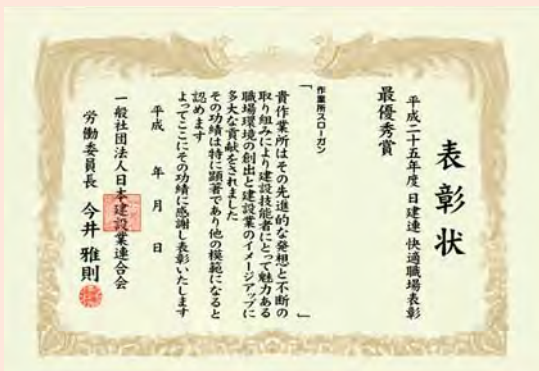 表彰状
平成二十五年度 日建連 快適職場表彰
最優秀賞
作業所スローガン
「 」
貴作業所はその先進的な発想と不断の
取り組みにより建設技能者にとって魅力ある
職場環境の創出と建設業のイメージアップに
多大な貢献をされました
その功績は特に顕著であり他の模範になると
認めます
よってここにその功績に感謝し表彰いたします
平成 年 月 日
一般社団法人日本建設業連合会
労働委員長 今井 雅則